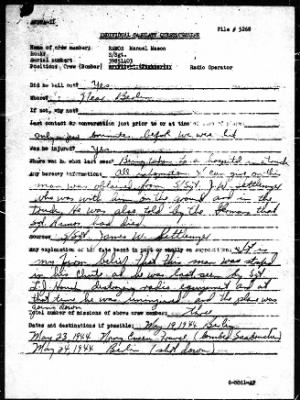 File # 5268
INDIVIDUAL CASUALTY QUESTIONNAIRE
Name of crew member: RAMOS Manuel Mason
Rank: S/Sgt.
Serial number: 39851403
Position, Crew (Bomber) Radio Operator
Did he bail out? Yes
Where? Near Berlin
If not, why not?
Last contact or conversation just prior to or at time of
only a few minutes before we was hit
Was he injured? Yes
Where was he when last seen? Being taken to a hospital in a truck
Any hearsay information: All information I can give on this
man was obtained from S/Sgt. J. W.
who was with him on the ground and in the
truck. He was also told by the Germans that
Sgt Ramos had died.
Source: S/Sgt. James W.
Any explanation of his fate based in part or wholly on supposition: It is
my firm belief that this man was
in his chute as he was last seen by Sgt
L.J. destroying radio equipment and at
that time he was uninjured and the plane was
going down
Total number of missions of above crew member: three
Dates and destinations if possible: May 19, 1944 Berlin
May 23, 1944
May 24, 1944 Berlin (shot down)